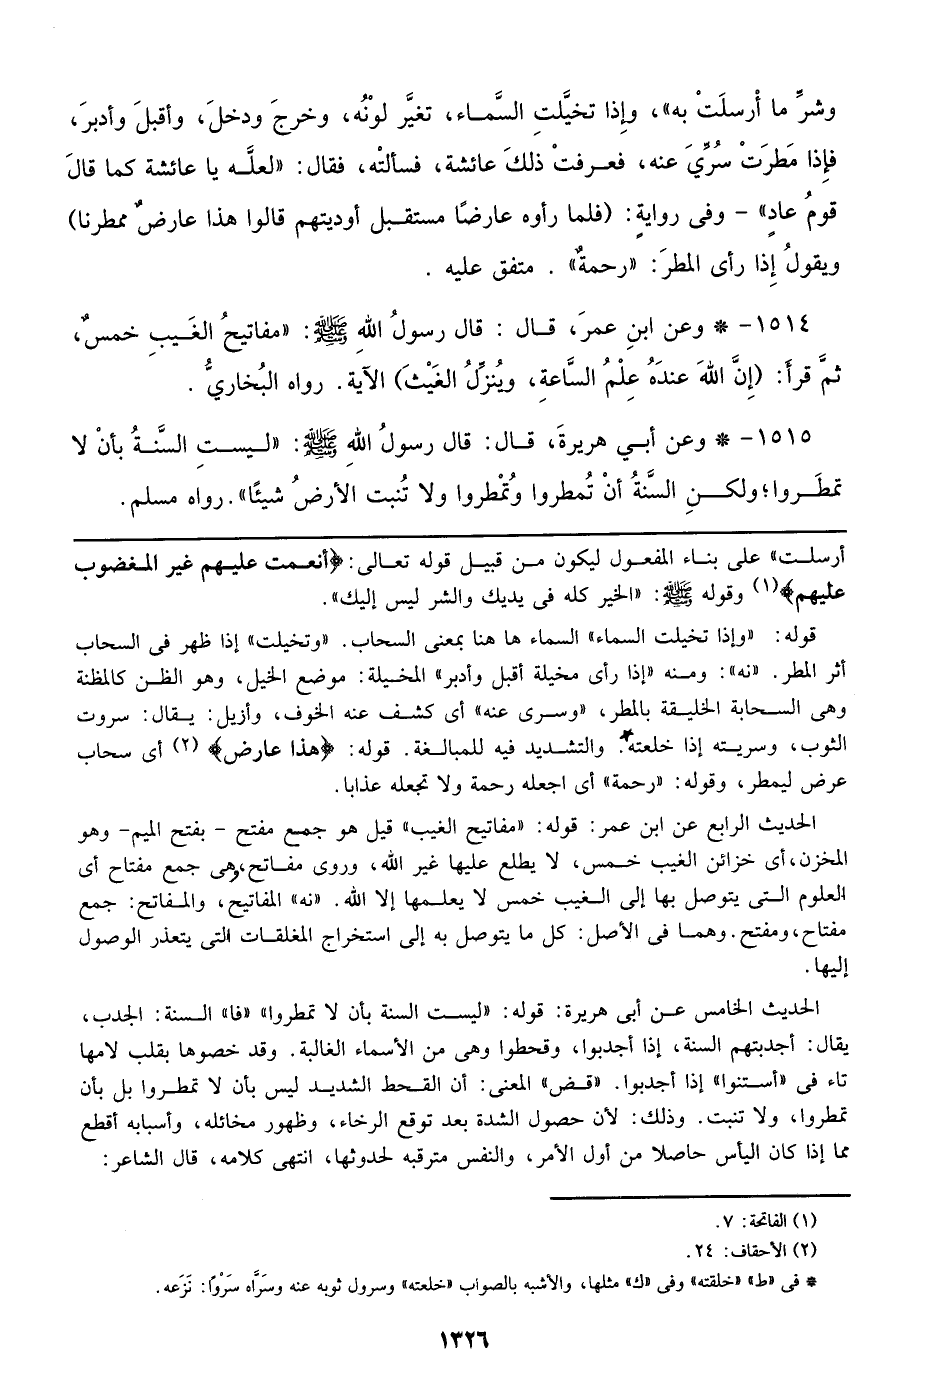 وشرِّ ما أُرسلَتْ به»، وإذا تخيَّلتِ السَّماء، تغيَّر لونُه، وخرجَ ودخلَ، وأقبلَ وأدبرَ،
فإذا مَطرَتْ سُرِّيَ عنه، فعرفتْ ذلكَ عائشة، فسألتْه، فقال: «لعلَّه يا عائشة كما قالَ
قومُ عادٍ» - وفى روايةٍ: (فلما رأوه عارضًا مستقبل أوديتهم قالوا هذا عارضٌ ممطرنا)
ويقولُ إذا رأى المطرَ: «رحمةٌ» . متفق عليه .
١٥١٤- * وعن ابنِ عمرَ، قال : قال رسولُ اللهِ ﷺ: «مفاتيحُ الغَيبِ خمسٌ،
ثمَّ قرأ: (إنَّ اللهَ عندَهُ عِلْمُ السَّاعةِ، ويُنزِّلُ الغَيْثَ) الآية. رواه البُخاريُّ .
١٥١٥- * وعن أبي هريرةَ، قال: قال رسولُ اللهِ ﷺ: «ليستِ السَّنةُ بأنْ لا
تمطَروا؛ ولكنِ السَّنةُ أنْ تُمطروا وتُمْطروا ولا تُنبت الأرضُ شيئًا». رواه مسلم.
أرسلت» على بناء المفعول ليكون من قبيل قوله تعالى: ﴿أنعمت عليهم غير المغضوب
عليهم﴾(١) وقوله ﷺ: «الخير كله فى يديك والشر ليس إليك».
قوله: «وإذا تخيلت السماء» السماء ها هنا بمعنى السحاب. «وتخيلت» إذا ظهر فى السحاب
أثر المطر. «نه»: ومنه «إذا رأى مخيلة أقبل وأدبر» المخيلة: موضع الخيل، وهو الظن كالمظنة
وهى السحابة الخليقة بالمطر، «وسرى عنه» أى كشف عنه الخوف، وأزيل: يقال: سروت
الثوب، وسريته إذا خلعته*. والتشديد فيه للمبالغة. قوله: ﴿هذا عارض﴾ (٢) أى سحاب
عرض ليمطر، وقوله: «رحمة» أى اجعله رحمة ولا تجعله عذابا.
الحديث الرابع عن ابن عمر: قوله: «مفاتيح الغيب» قيل هو جمع مفتح - بفتح الميم- وهو
المخزن، أى خزائن الغيب خمس، لا يطلع عليها غير الله، وروى مفاتح، وهى جمع مفتاح أى
العلوم التى يتوصل بها إلى الغيب خمس لا يعلمها إلا الله. «نه» المفاتيح، والمفاتح: جمع
مفتاح، ومفتح. وهما فى الأصل: كل ما يتوصل به إلى استخراج المغلقات التى يتعذر الوصول
إليها.
الحديث الخامس عن أبى هريرة: قوله: «ليست السنة بأن لا تمطروا» «فا» السنة: الجدب،
يقال: أجدبتهم السنة، إذا أجدبوا، وقحطوا وهى من الأسماء الغالبة. وقد خصوها بقلب لامها
تاء فى «أستنوا» إذا أجدبوا. «قض» المعنى: أن القحط الشديد ليس بأن لا تمطروا بل بأن
تمطروا، ولا تنبت. وذلك: لأن حصول الشدة بعد توقع الرخاء، وظهور مخائله، وأسبابه أقطع
مما إذا كان اليأس حاصلا من أول الأمر، والنفس مترقبه لحدوثها، انتهى كلامه، قال الشاعر:
(١) الفاتحة: ٧.
(٢) الأحقاف: ٢٤.
* فى «ط» «خلقته» وفى «ك» مثلها، والأشبه بالصواب «خلعته» وسرول ثوبه عنه وسرَّاه سَرْوًا: نَزَعَه.
١٣٢٦